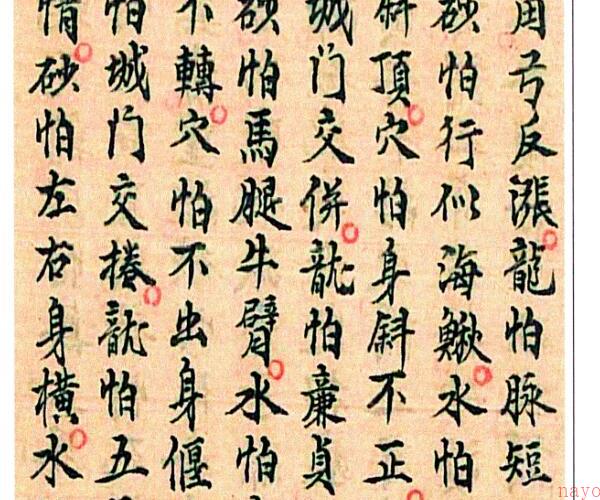 弓反漲龍怕脉短
砂怕行似海鰍水怕
斜頂穴怕身斜不正
城門交併龍怕廉貞
砂怕馬腿牛臂水怕
不轉穴怕不出身偃
怕城門交捲龍怕五
情砂怕左右身橫水
nayo